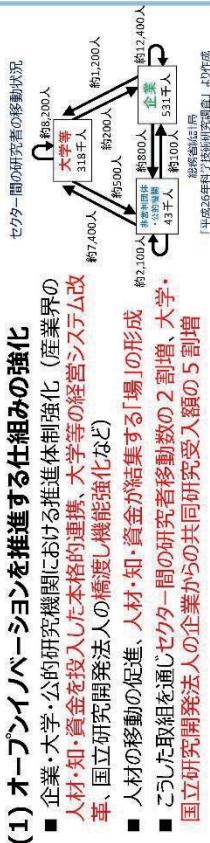 (1) オープンイノベーションを推進する仕組みの強化
■ 企業・大学・公的研究機関における推進体制強化（産業界の
人材・知・資金を投入した本格的連携、大学等の経営システム改
革、国立研究開発法人の橋渡し機能強化など）
■ 人材の移動の促進、人材・知・資金が結集する「場」の形成
■ こうした取組を通じセクター間の研究者移動数の２割増、大学・
国立研究開発法人の企業からの共同研究受入額の５割増
セクター間の研究者の移動状況
約8,200人
大学等
318千人
約7,400人
約500人
約200人
約1,200人
非営利団体
・公的機関
43千人
約2,100人
約800人
約100人
企業
531千人
約12,400人
総務省統計局
「平成26年科学技術研究調査」より作成